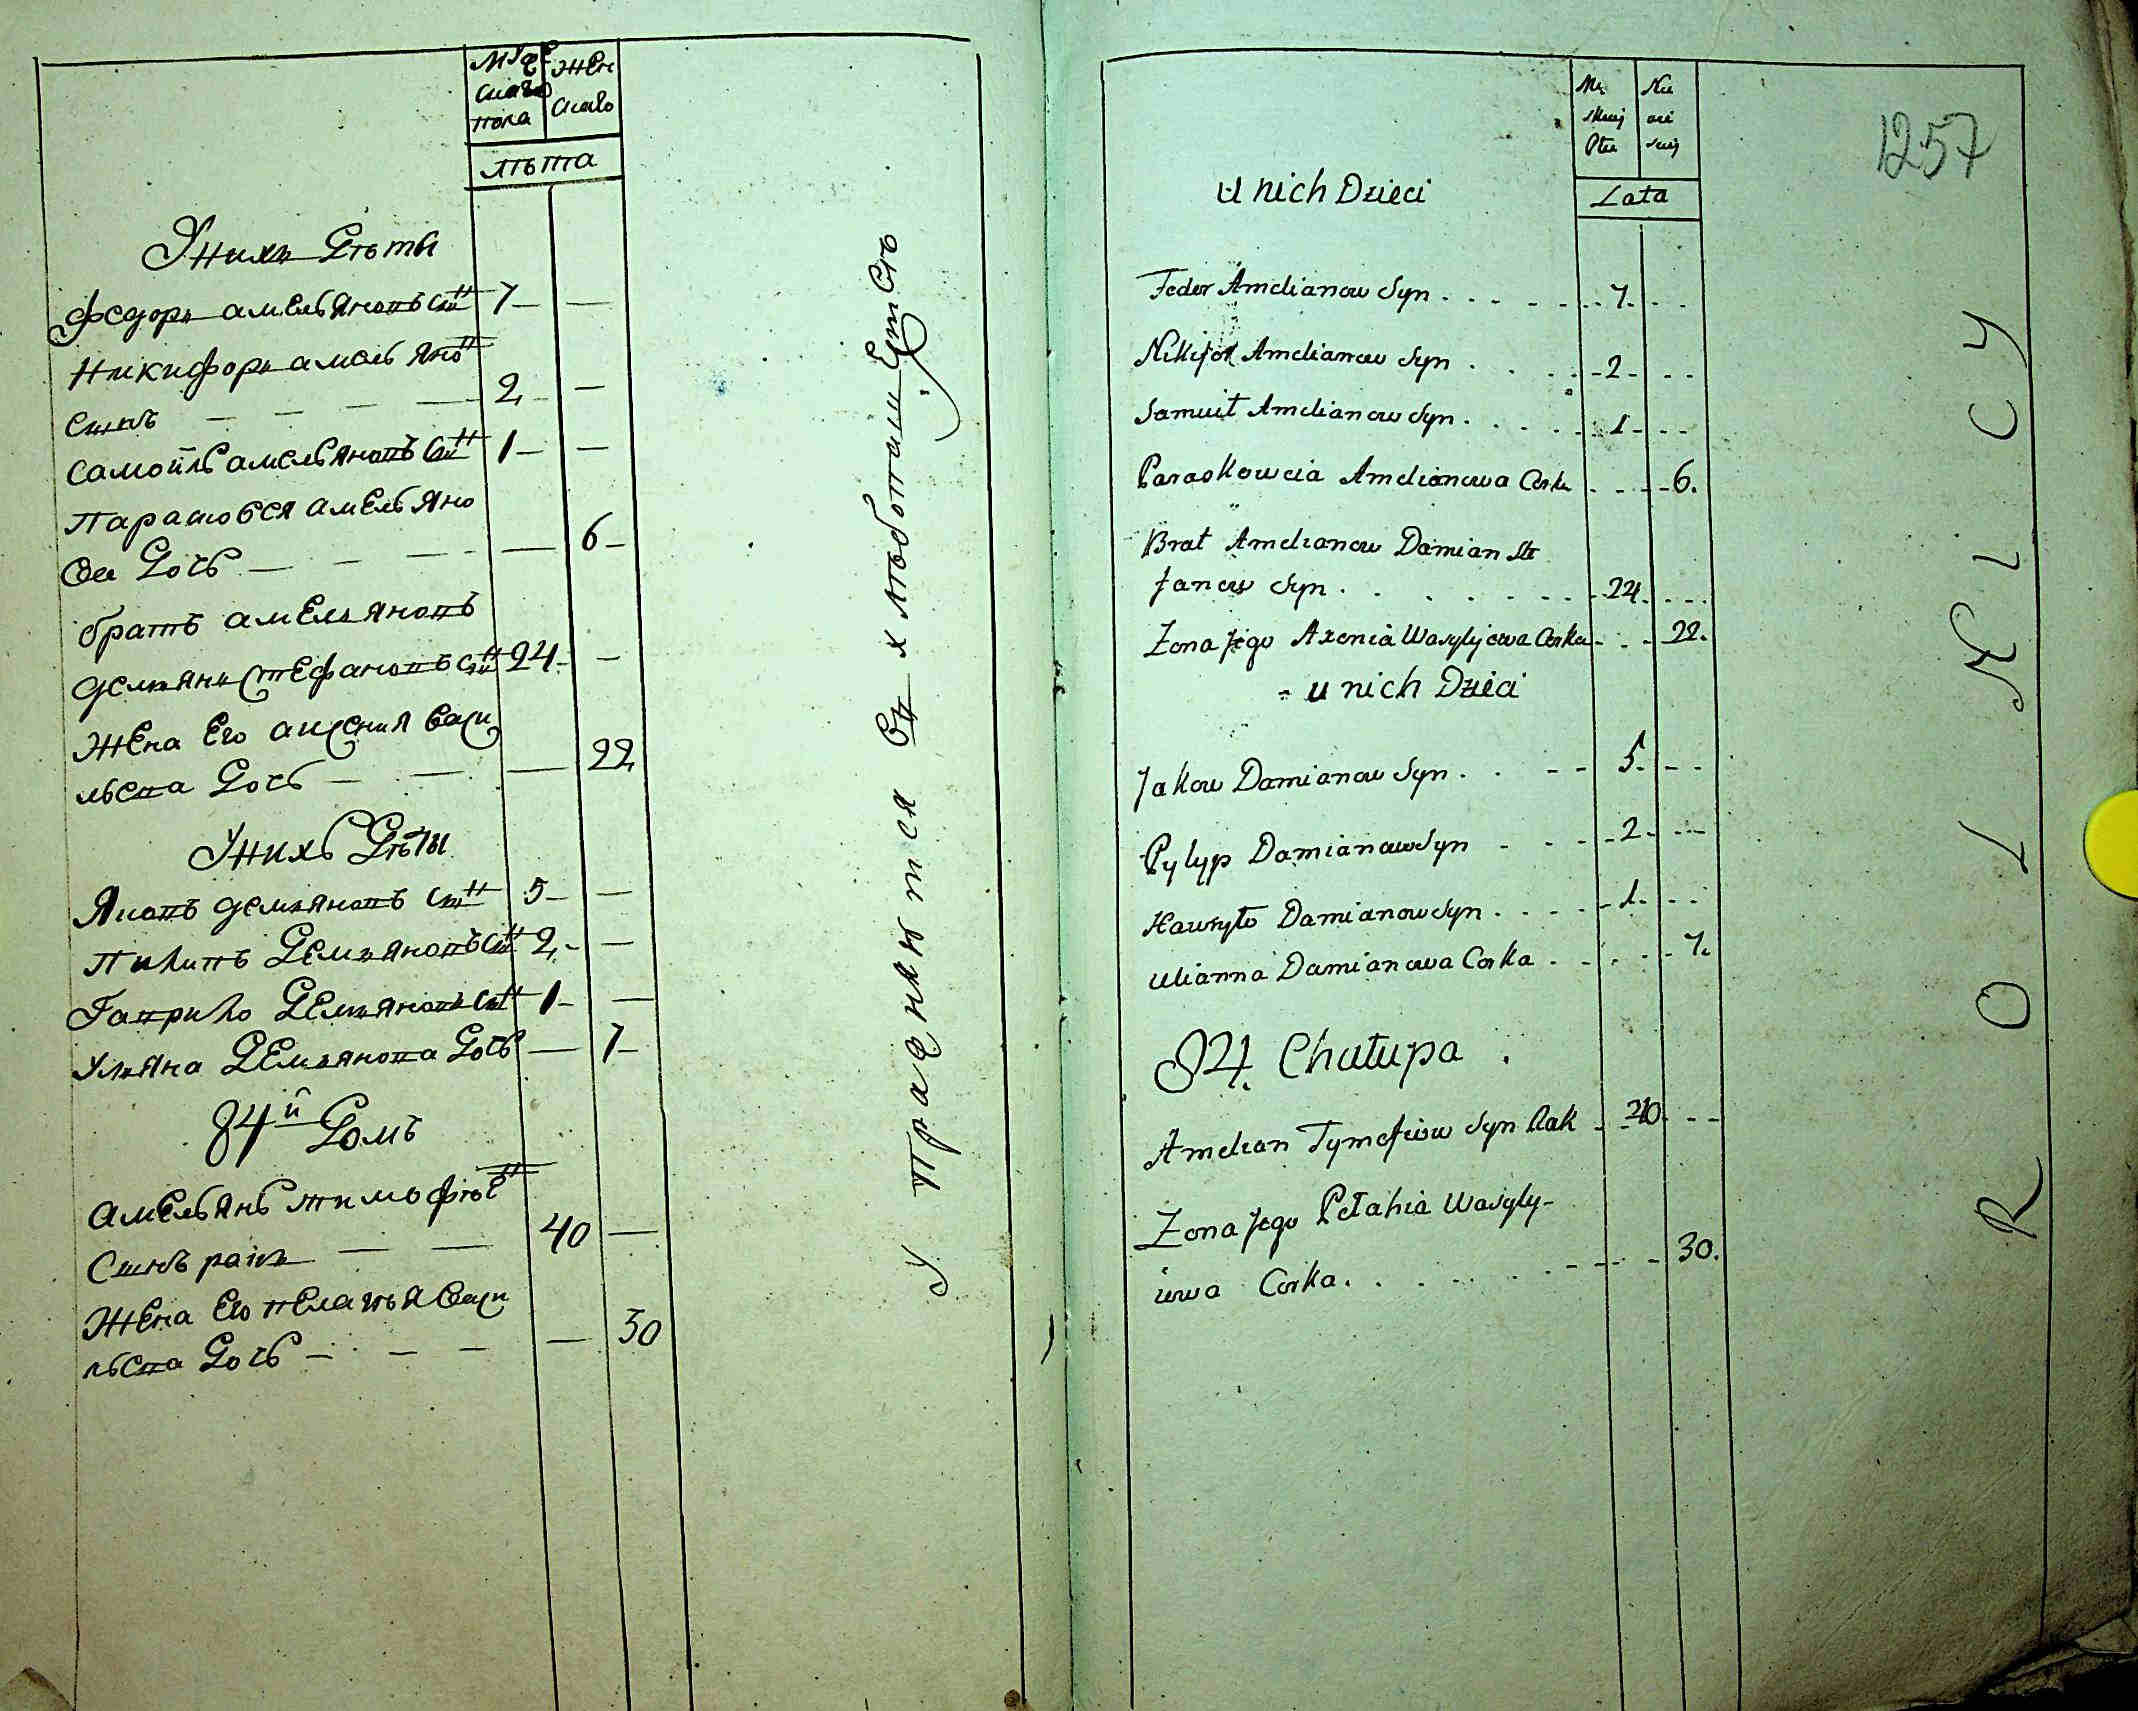 муже
ского
пола
жен
ского
лѣта
У нихъ дѣти
федоръ амельяновъ сынъ 7 —
никифоръ амельяно
сынъ — — — — 2 —
самойлъ амельяновъ сынъ 1 —
парасковея амельяно
ва дочь — — — — 6
братъ амельяновъ
демянъ стефановъ сынъ 24 —
жена его аксения васи
льева дочь — — — 22
У нихъ дѣти
яковъ демяновъ сынъ 5 —
пилипъ демяновъ сынъ 2 —
гаврило демяновъ сынъ 1 —
уляна демянова дочь — 7
84й домъ
амельянъ тимофѣе
сынъ ракъ — — 40 —
жена его пелагѣя васи
льева дочь — — — — 30
упражняются въ хлебопашествѣ
1257
Mę
skiej
Płci
Nie
wie
sciej
Lata
U nich Dzieci
Fedor Amelianow Syn . . . . . 7. . .
Nikifor Amelianow Syn . . . . 2 . . .
Samuił Amelianow Syn . . . . . 1 . . .
Paraskoweia Amelianowa Corka . . . . 6.
Brat Amelianow Damian Ste
fanow Syn . . . . . . . . 24. . . .
Zona Jego Axenia Wasylijowa Corka . . . 22.
u nich Dzieci
Jakow Damianow Syn . . . . 5. . . .
Pylyp Damianow Syn . . . . 2 . . . .
Hawryło Damianow Syn . . . . . 1. . . .
Ulianna Damianowa Corka . . . . . . 7.
84. Chałupa .
Amelian Tymofiiow Syn Rak . . 40 . . .
Zona Jego Pełahia Wasyly-
iowa Corka . . . . . . . . . . . 30.
ROLNICY